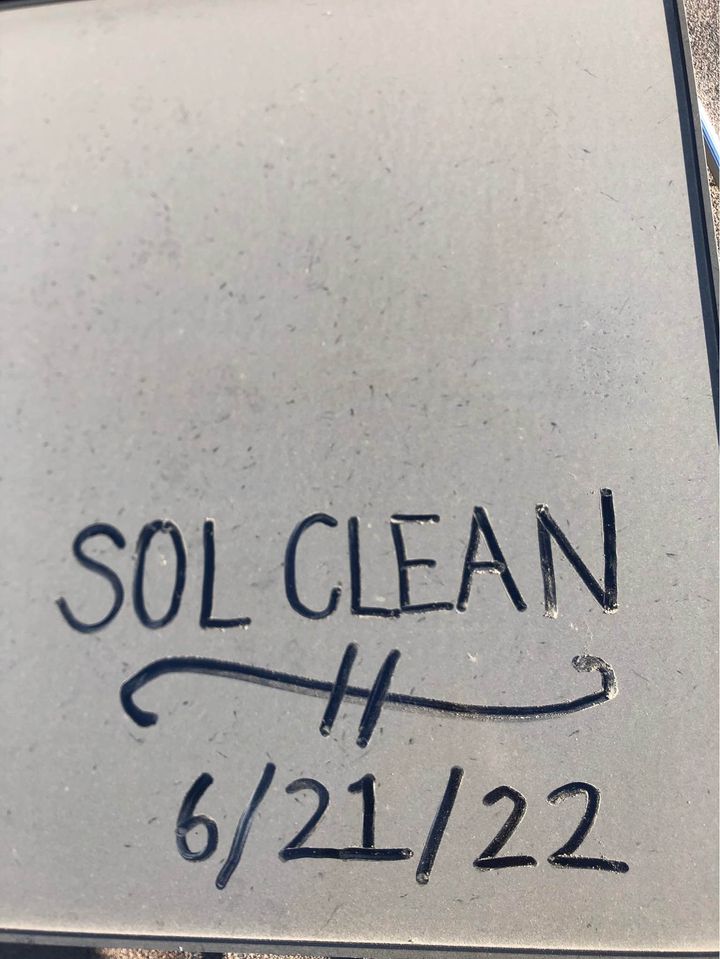 SOL CLEAN
6/21/22